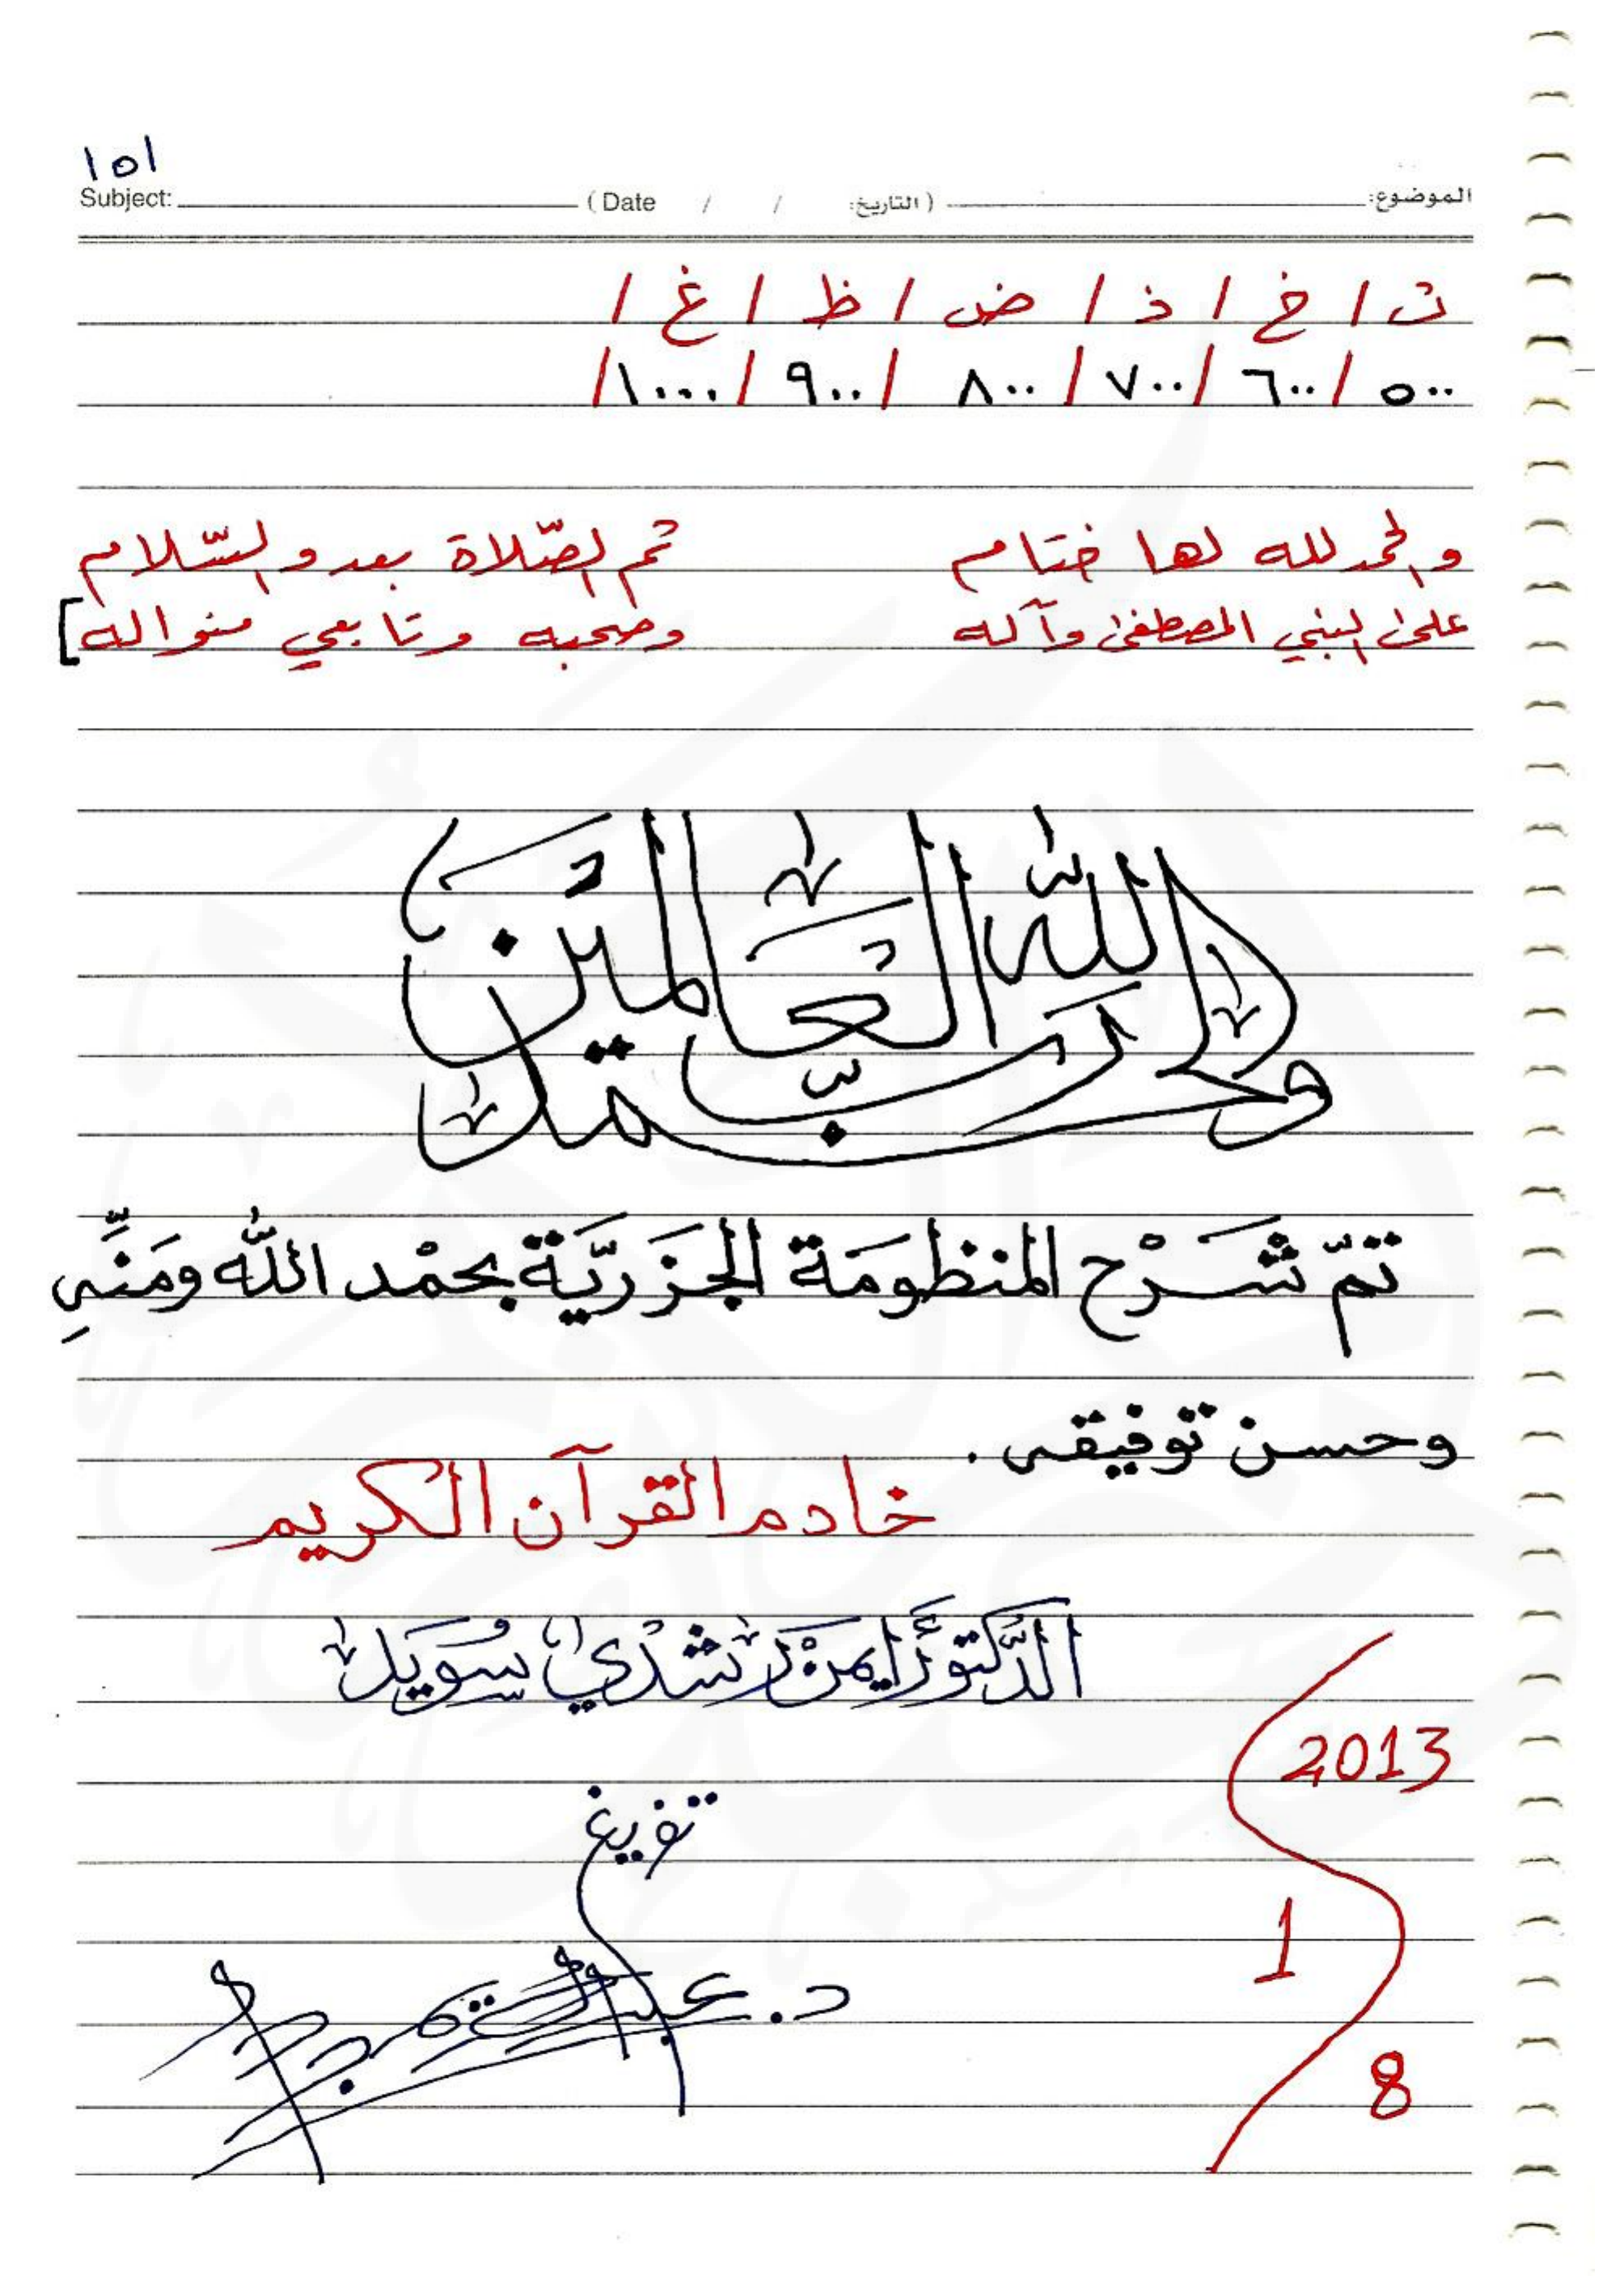 ١٥١
Subject: ( Date / / التاريخ: ) الموضوع:
ث / خ / ذ / ض / ظ / غ /
٥٠٠ / ٦٠٠ / ٧٠٠ / ٨٠٠ / ٩٠٠ / ١٠٠٠ /
والحمد لله لها ختام ثم الصّلاة بعد والسّلام
على النبي المصطفى وآله وصحبه وتابعي منواله]
والحمد لله رب العالمين
تمّ شَرْح المنظومَة الجَزَريَّة بحمْد اللّٰه ومَنِّهِ
وحسن توفيقه .
خادم القرآن الكريم
الدّكتور أيمن رشدي سويد
2013
تفريغ
1
د. عبد
8